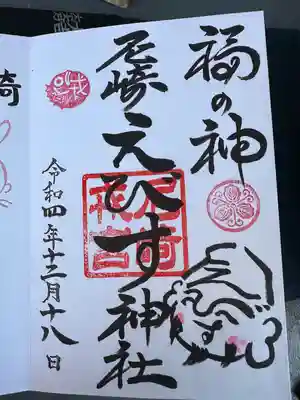 福の神
尼崎えびす神社
令和四年十二月十八日
崎